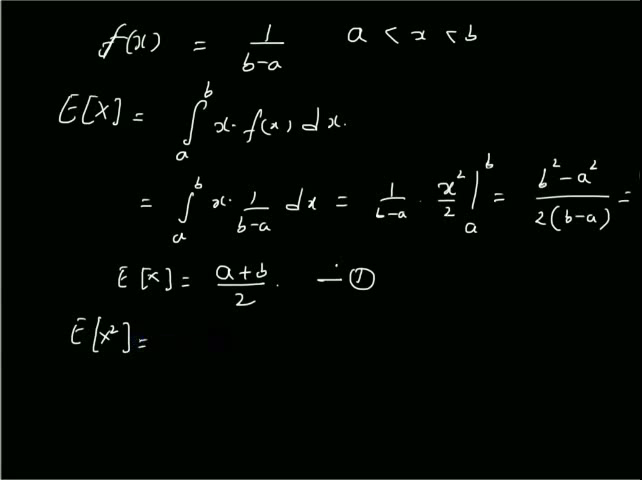 f(x) = 1/(b-a)  a < x < b
E[X] = ∫_a^b x. f(x) dx.
= ∫_a^b x. 1/(b-a) dx = 1/(b-a) . x²/2 |_a^b = (b²-a²)/(2(b-a)) =
E[x] = (a+b)/2 . — ①
E[x²] =